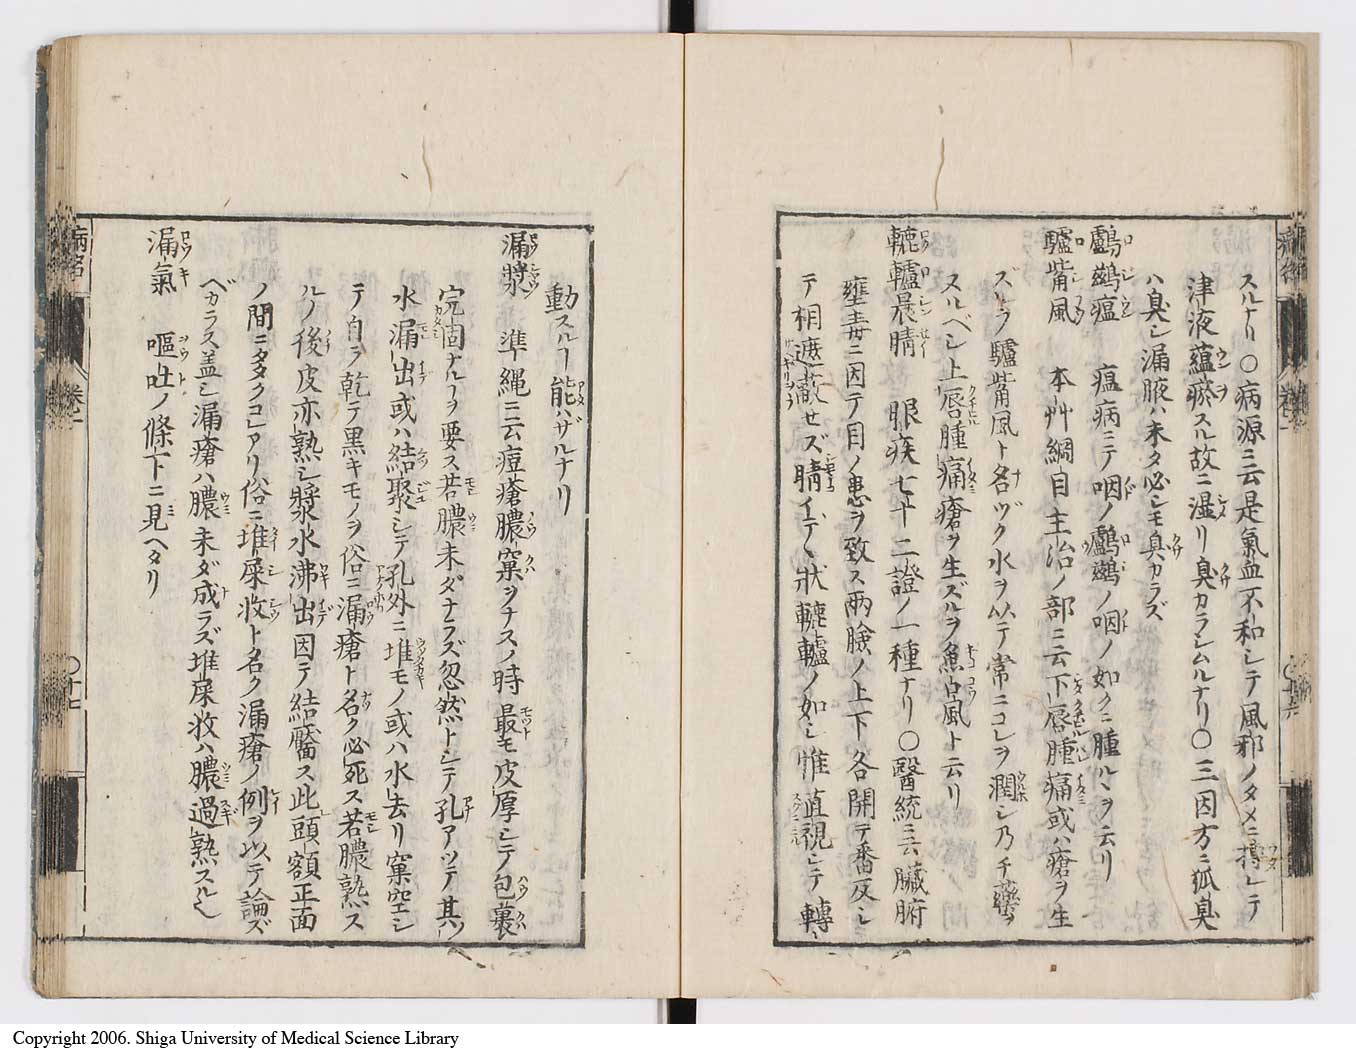 スルナリ〇病源ニ云是氣血不和シテ風邪ノタメニ搏レテ
津液蘊瘀スル故ニ湿リ臭カラシムルナリ〇三因方ニ狐臭
ハ臭シ漏腋ハ未タ必シモ臭カラズ
鸕鷀瘟 瘟病ニテ咽ノ鸕鷀ノ咽ノ如クニ腫ルヽヲ云リ
驢觜風 本艸綱目主治ノ部ニ云下唇腫痛或ハ瘡ヲ生
ズルヲ驢觜風ト名ヅク水ヲ以テ常ニコレヲ潤シ乃チ藥ヲ
スルベシ上唇腫痛瘡ヲ生ズルヲ魚口風ト云リ
轆轤晨睛 眼疾七十二證ノ一種ナリ〇醫統ニ云臓腑
壅毒ニ因テ目ノ患ヲ致ス兩瞼ノ上下各開テ番反シ
テ相遮蔽セズ睛イデヽ状轆轤ノ如シ惟直視シテ轉
動スルヿ能ハザルナリ
漏漿 準縄ニ云痘瘡膿窠ヲナスノ時最モ皮厚シテ包裹
完固ナルヿヲ要ス若膿未ダナラズ忽然トシテ孔アツテ其
水漏出或ハ結聚シテ孔外ニ堆モノ或ハ水去リ窠空シ
テ自ラ乾テ黒キモノヲ俗ニ漏瘡ト名ク必死ス若膿熟ス
ルノ後皮亦熟シ漿水沸出因テ結靨ス此頭額正面
ノ間ニタタクコレアリ俗ニ堆屎收ト名ク漏瘡ノ例ヲ以テ論ズ
ベガラス盖シ漏瘡ハ膿未ダ成ラズ堆屎收ハ膿過熟スルヿ
漏氣 嘔吐ノ條下ニ見ヘタリ
病名 卷一 〇十七
Copyright 2006. Shiga University of Medical Science Library